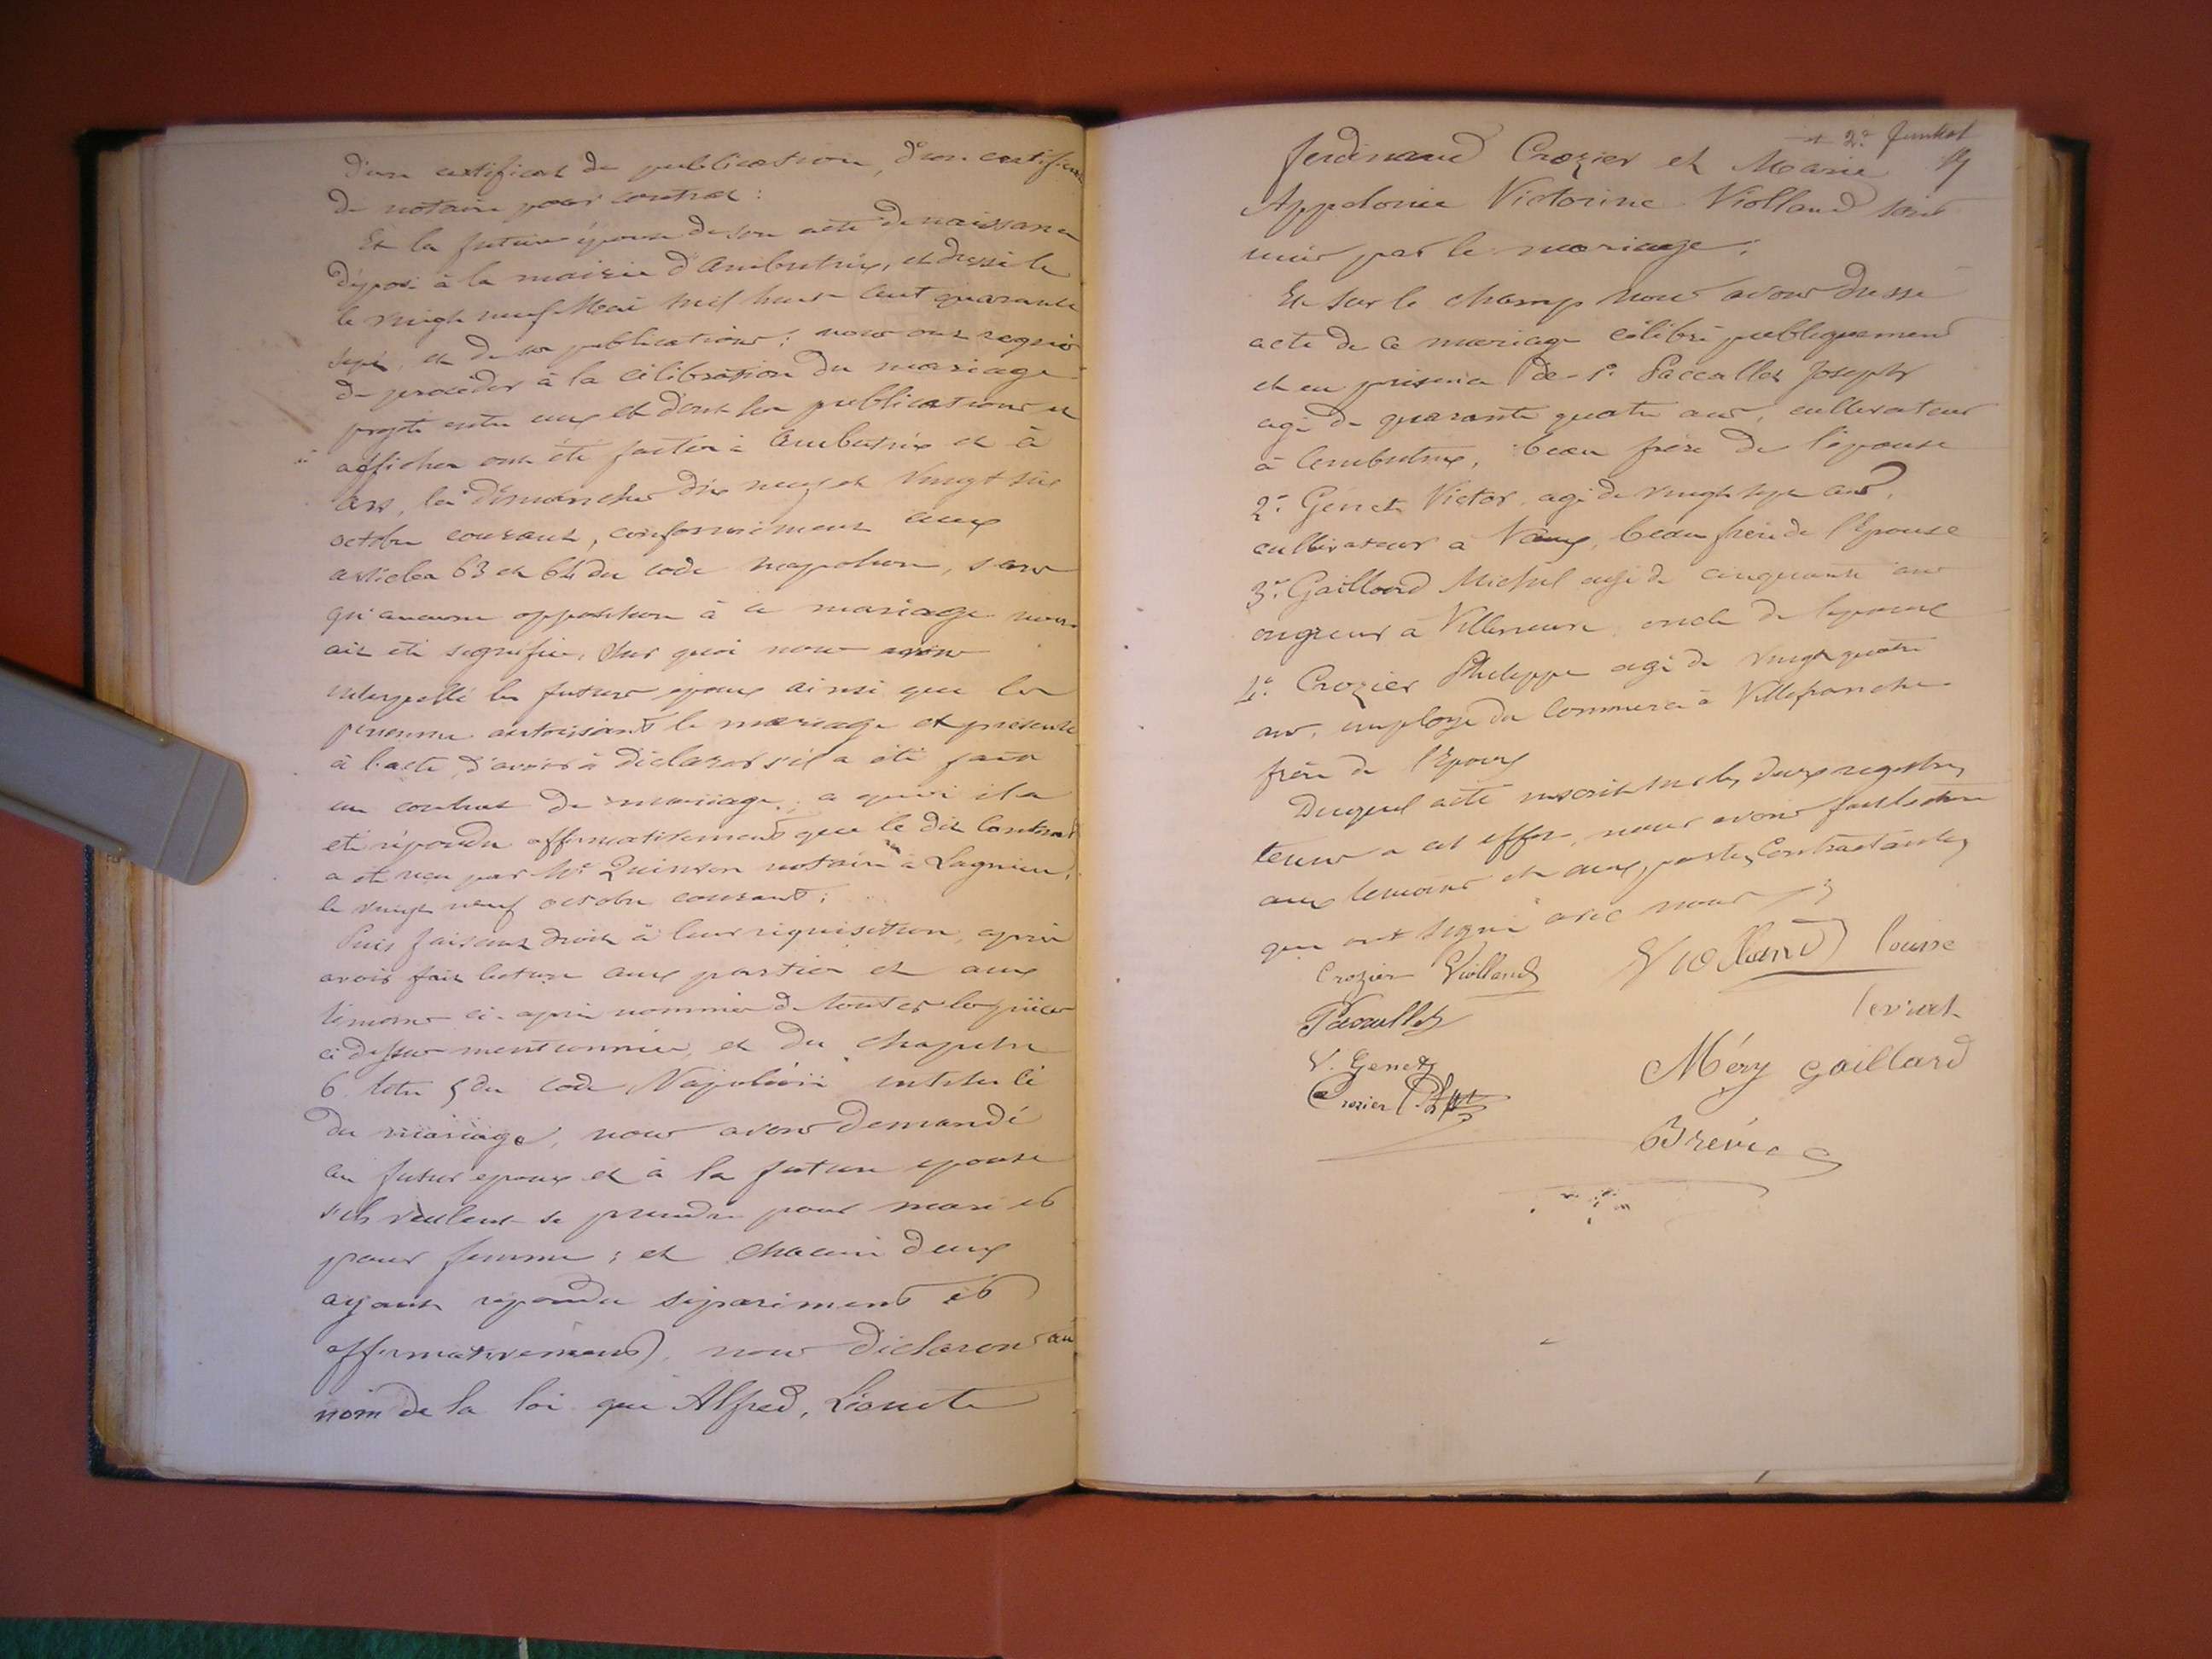 d'un certificat de publication, d'un certificat
de notaire pour contrat :
Et la future épouse de son acte de naissance
déposé à la mairie d'Ambutrix, et dressé le
le vingt neuf Mai mil huit cent quarante
sept, et de ses publications ; nous ont requis
de procéder à la célébration du mariage
projeté entre eux et dont les publications et
affiches ont été faites à Ambutrix et à
Ars, les dimanches dix neuf et vingt six
octobre courant, conformément aux
articles 63 et 64 du code napoléon, sans
qu'aucune opposition à ce mariage nous
ait été signifiée, Sur quoi nous avons
interpellé les futurs époux ainsi que les
personnes autorisant le mariage et présentes
à l'acte, d'avoir à déclarer s'il a été fait
un contrat de mariage, a quoi il a
été répondu affirmativement que le dit Contrat
a été reçu par Me Quinson notaire à Lagnieu,
le vingt neuf octobre courant ;
Puis faisant droit à leur réquisition, après
avoir fait lecture aux parties et aux
témoins ci-après nommés de toutes les pièces
ci dessus mentionnées, et du chapitre
6 titre 5 du code Napoléon intitulé
du mariage, nous avons demandé
au futur époux et à la future épouse
s'ils veulent se prendre pour mari et
pour femme ; et chacun d'eux
ayant répondu séparément et
affirmativement, nous déclarons au
nom de la loi que Alfred,
2e
ferdinand Crozier et Marie
Appolonie Victorine Violland sont
unis par le mariage ;
Et sur le champ nous avons dressé
acte de ce mariage célébré publiquement
et en présence de 1o Paccallet Joseph
agé de quarante quatre ans, cultivateur
à Ambutrix, beau frère de l'épouse
2o Genet Victor agé de vingt sept ans,
cultivateur à Vaux, beau frère de l'Epouse
3o Gaillard Michel agé de cinquante ans
à oncle de l'épouse
4o Crozier Philippe agé de vingt quatre
ans, employé du Commerce à Villefranche
frère de l'Epoux
Duquel acte inscrit sur les deux registres
tenus a cet effet, nous avons fait lecture
aux témoins et aux parties Contractantes
qui ont signé avec nous ;
Crozier Violland Violland Louise
Paccallet Levrat
V. Genet Méry Gaillard
Crozier Ph
Brévet